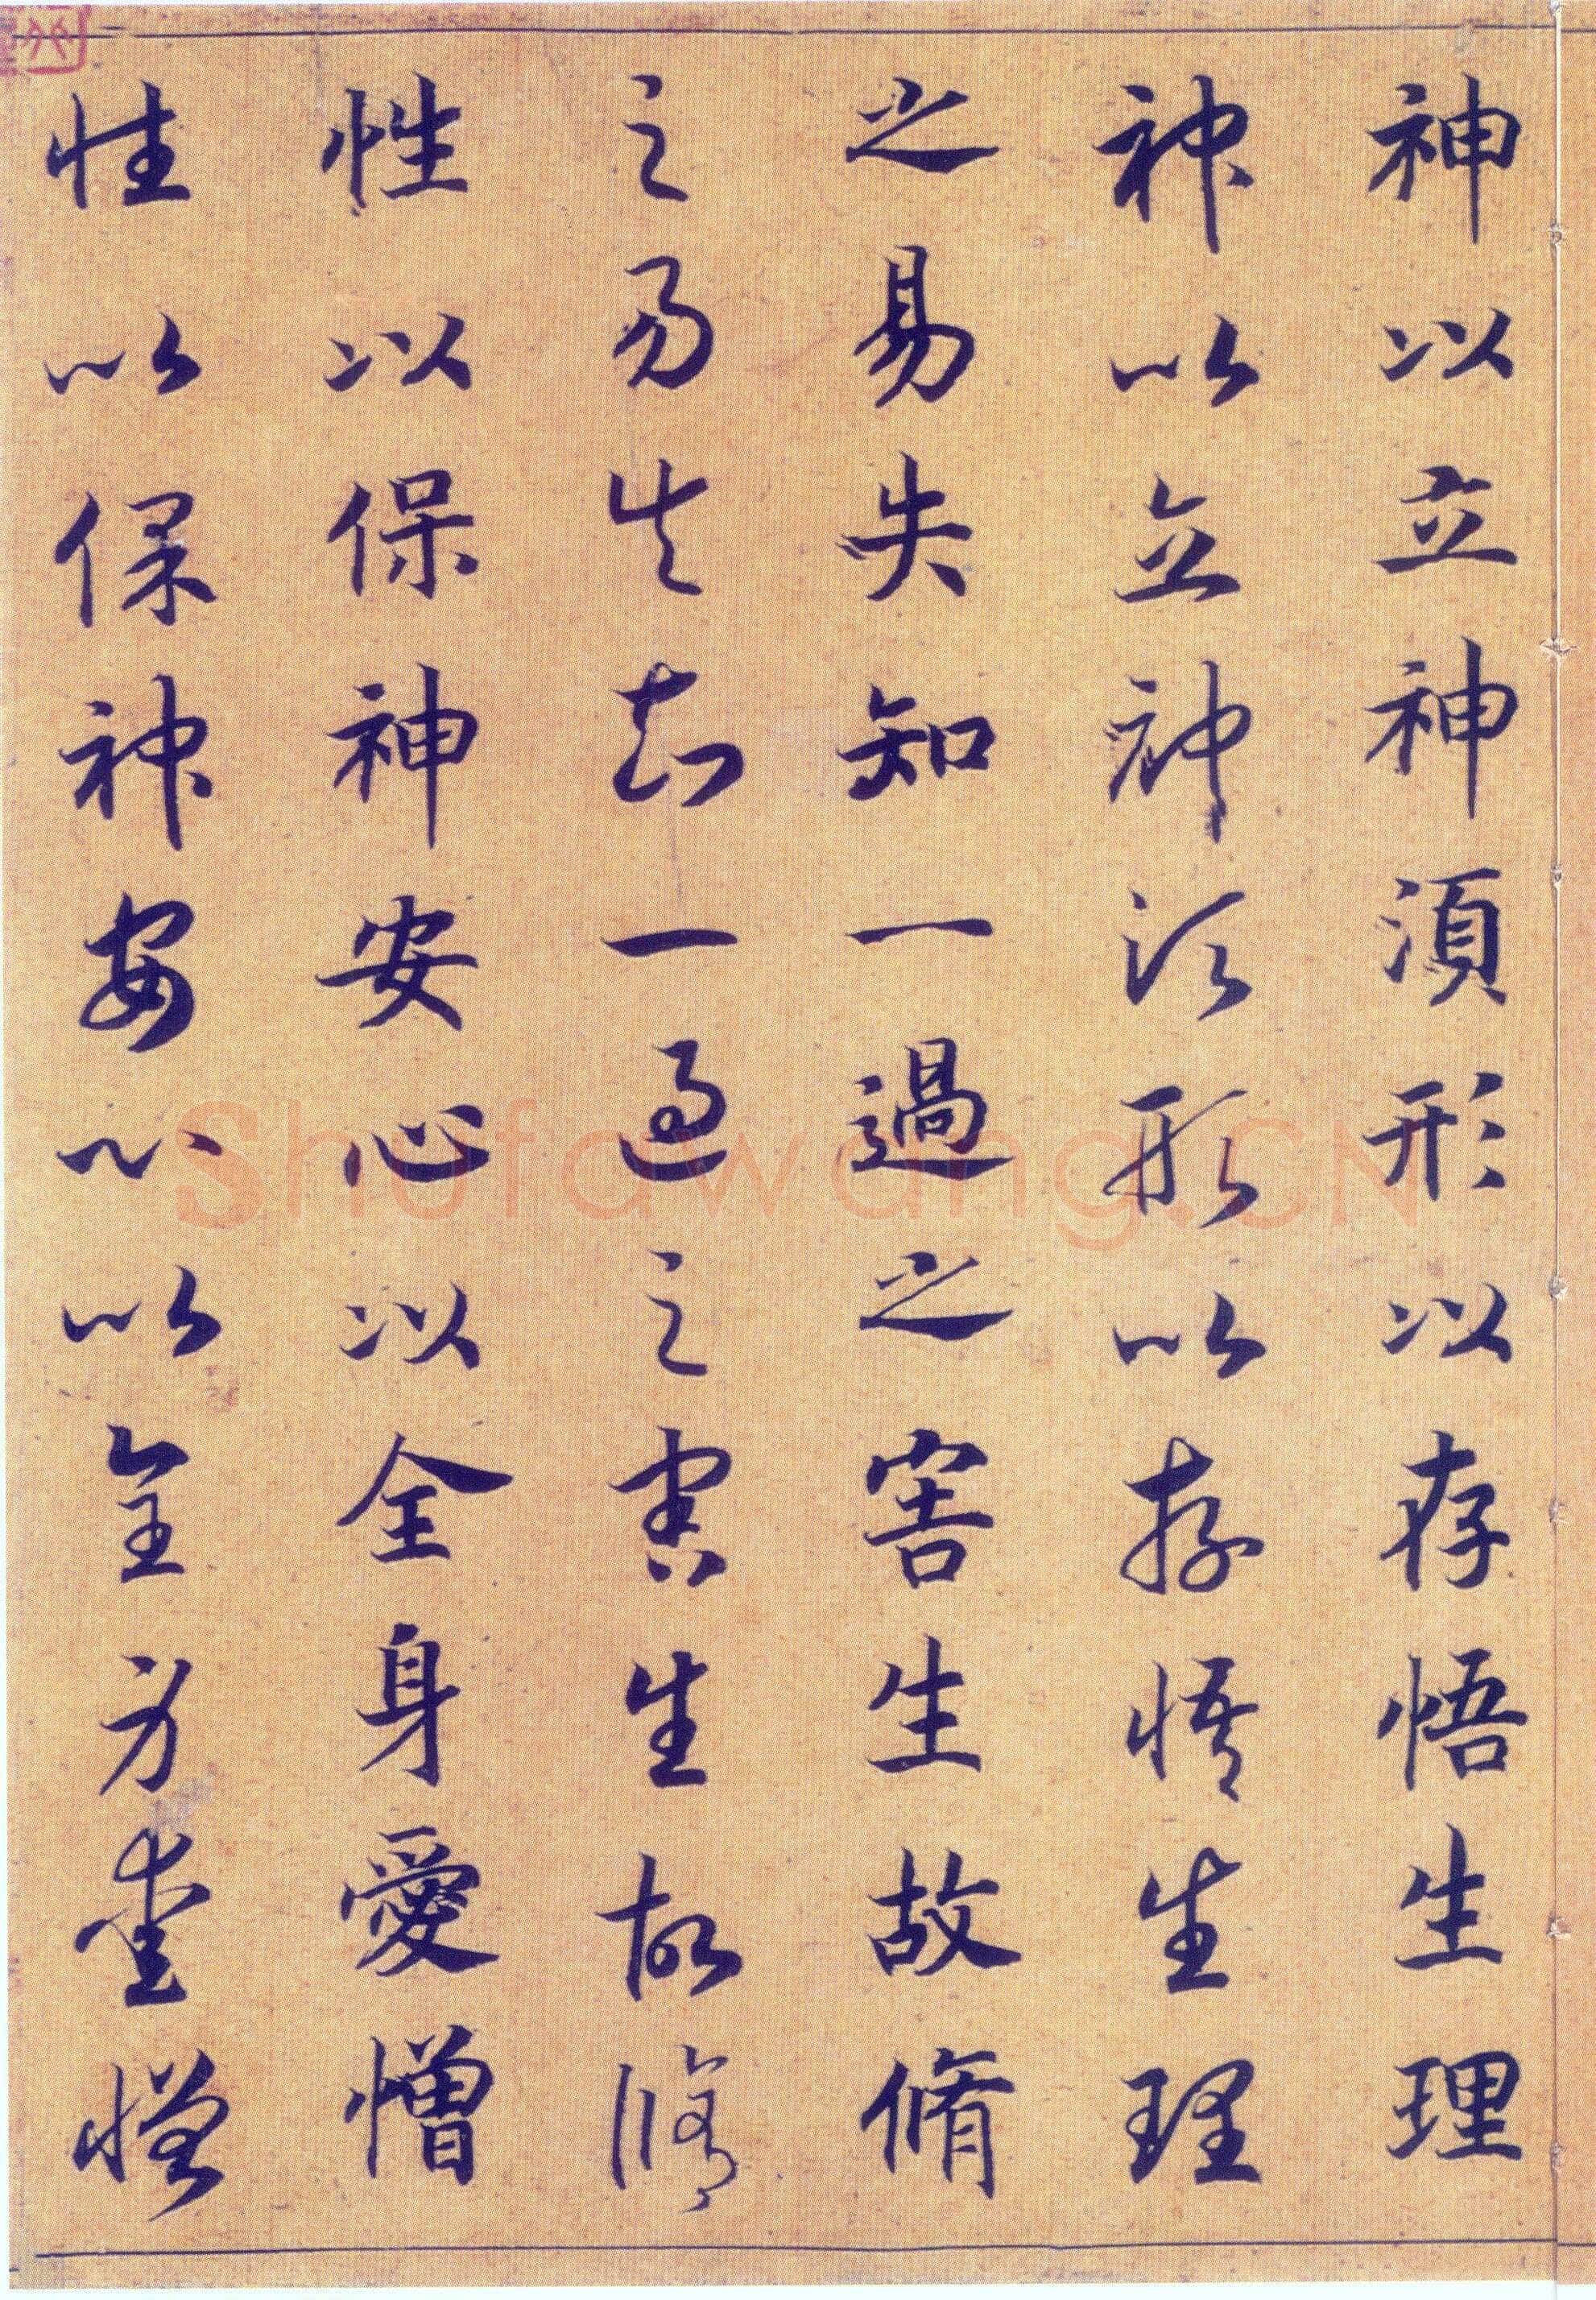 神以立神湏形以存悟生理
神以立神須形以存悟生理
之易失知一過之害生故脩
之易失知一過之害生故脩
性以保神安心以全身愛憎
性以保神安心以全身愛憎
Shufawang.CN